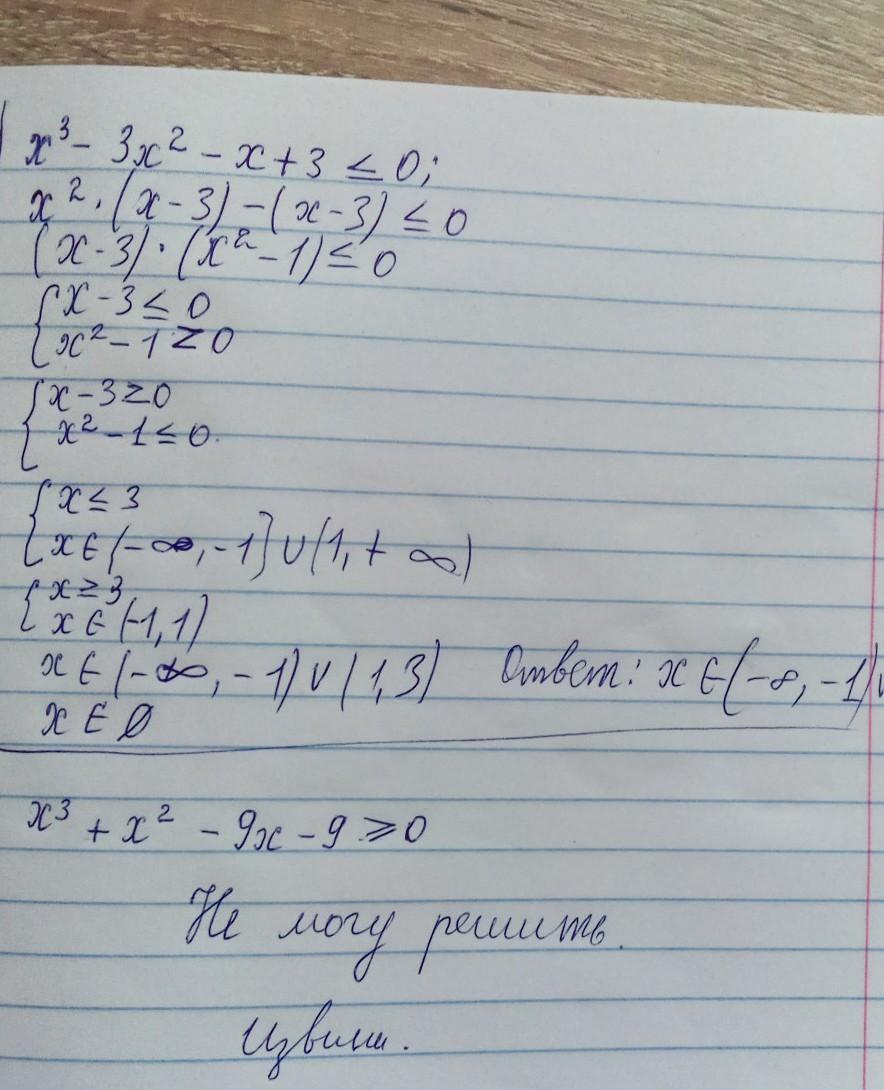 x³ - 3x² - x + 3 ≤ 0;
x² · (x - 3) - (x - 3) ≤ 0
(x - 3) · (x² - 1) ≤ 0
{ x - 3 ≤ 0
x² - 1 ≥ 0
{ x - 3 ≥ 0
x² - 1 ≤ 0.
{ x ≤ 3
x ∈ (-∞, -1] ∪ (1, + ∞)
{ x ≥ 3
x ∈ (-1, 1)
x ∈ (-∞, -1) ∪ (1, 3) Ответ: x ∈ (-∞, -1) ∪
x ∈ Ø
x³ + x² - 9x - 9 ≥ 0
Не могу решить.
Извини.